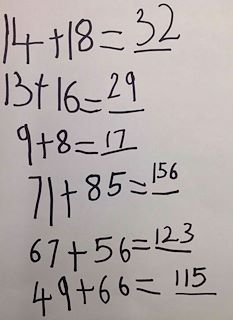 14+18=32
13+16=29
9+8=17
71+85=156
67+56=123
49+66=115